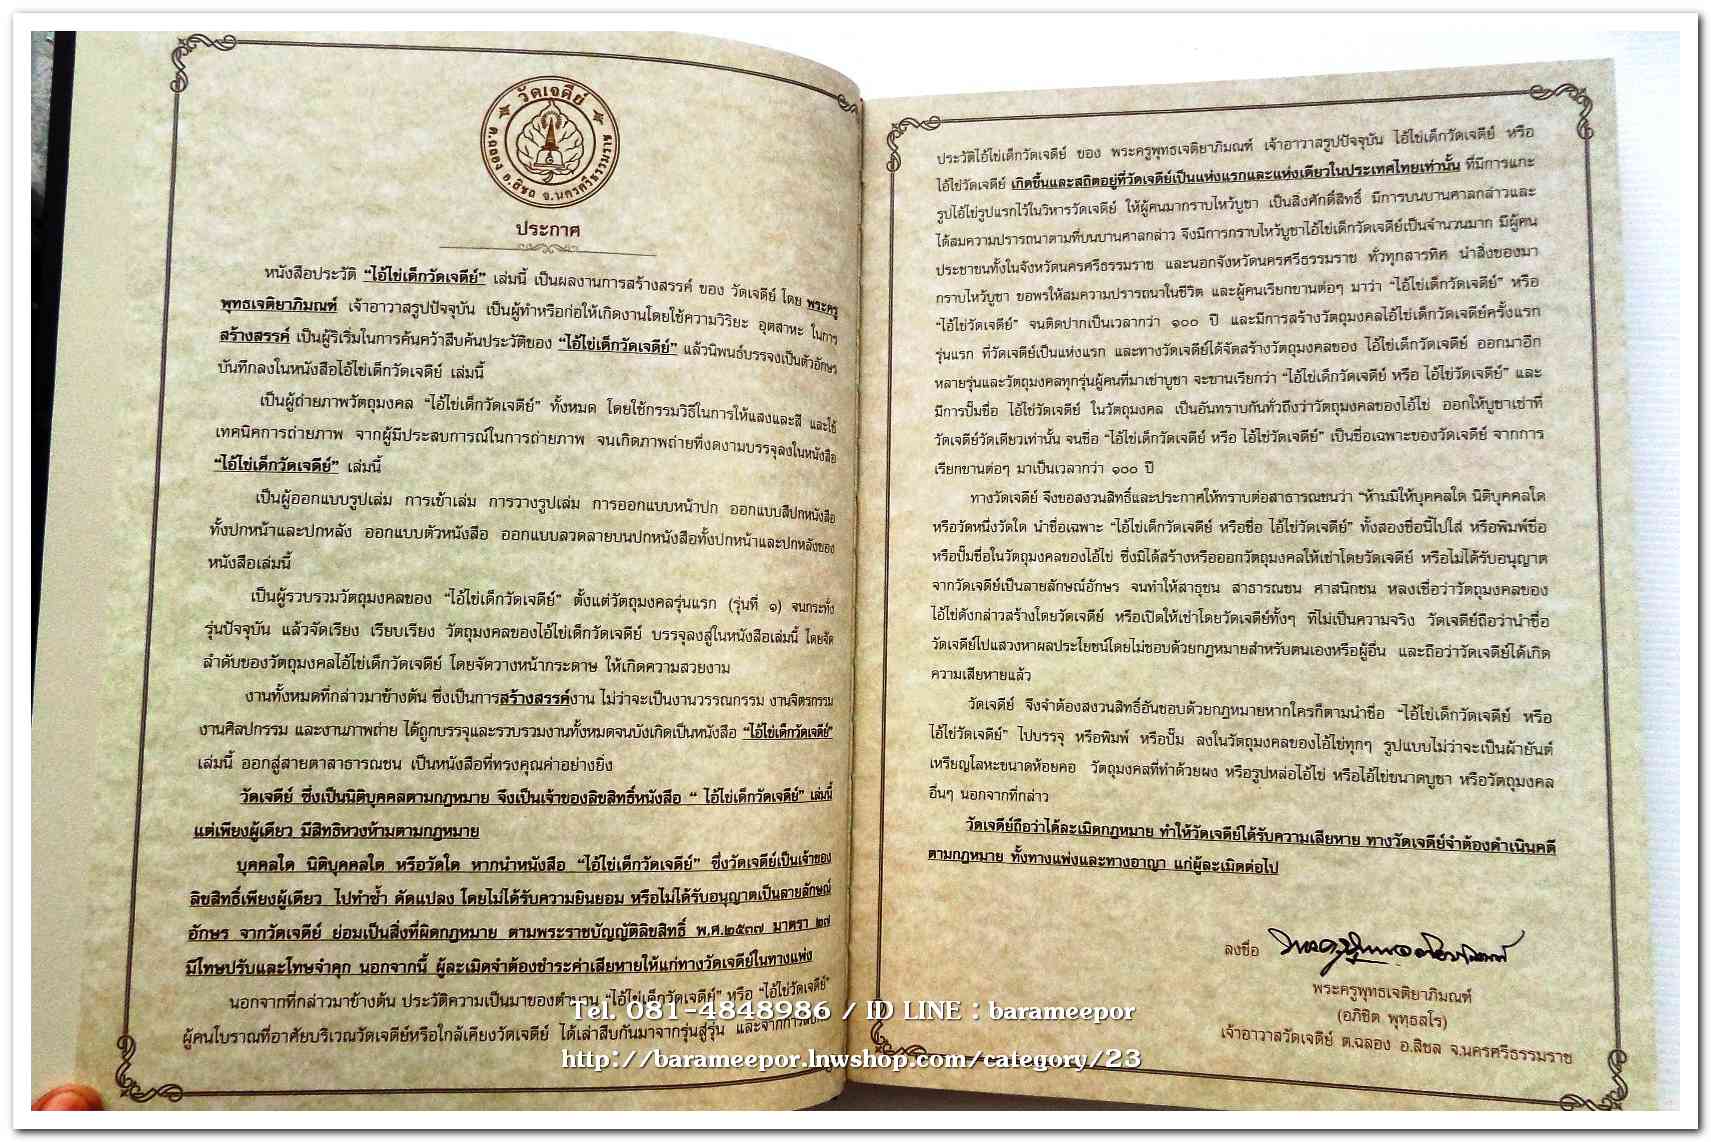 วัดเจดีย์
ต.ฉลอง อ.สิชล จ.นครศรีธรรมราช
ประกาศ
หนังสือประวัติ “ไอ้ไข่เด็กวัดเจดีย์” เล่มนี้ เป็นผลงานการสร้างสรรค์ ของ วัดเจดีย์ โดย พระครู
พุทธเจติยาภิมณฑ์ เจ้าอาวาสรูปปัจจุบัน เป็นผู้ทำหรือก่อให้เกิดงานโดยใช้ความวิริยะ อุตสาหะ ในการ
สร้างสรรค์ เป็นผู้ริเริ่มในการค้นคว้าสืบค้นประวัติของ “ไอ้ไข่เด็กวัดเจดีย์” แล้วนิพนธ์บรรจงเป็นตัวอักษร
บันทึกลงในหนังสือไอ้ไข่เด็กวัดเจดีย์ เล่มนี้
เป็นผู้ถ่ายภาพวัตถุมงคล “ไอ้ไข่เด็กวัดเจดีย์” ทั้งหมด โดยใช้กรรมวิธีในการให้แสงและสี และใช้
เทคนิคการถ่ายภาพ จากผู้มีประสบการณ์ในการถ่ายภาพ จนเกิดภาพถ่ายที่งดงามบรรจุลงในหนังสือ
“ไอ้ไข่เด็กวัดเจดีย์” เล่มนี้
เป็นผู้ออกแบบรูปเล่ม การเข้าเล่ม การวางรูปเล่ม การออกแบบหน้าปก ออกแบบสีปกหนังสือ
ทั้งปกหน้าและปกหลัง ออกแบบตัวหนังสือ ออกแบบลวดลายบนปกหนังสือทั้งปกหน้าและปกหลังของ
หนังสือเล่มนี้
เป็นผู้รวบรวมวัตถุมงคลของ “ไอ้ไข่เด็กวัดเจดีย์” ตั้งแต่วัตถุมงคลรุ่นแรก (รุ่นที่ ๑) จนกระทั่ง
รุ่นปัจจุบัน แล้วจัดเรียง เรียบเรียง วัตถุมงคลของไอ้ไข่เด็กวัดเจดีย์ บรรจุลงสู่ในหนังสือเล่มนี้ โดยจัด
ลำดับของวัตถุมงคลไอ้ไข่เด็กวัดเจดีย์ โดยจัดวางหน้ากระดาษ ให้เกิดความสวยงาม
งานทั้งหมดที่กล่าวมาข้างต้น ซึ่งเป็นการสร้างสรรค์งาน ไม่ว่าจะเป็นงานวรรณกรรม งานจิตรกรรม
งานศิลปกรรม และงานภาพถ่าย ได้ถูกบรรจุและรวบรวมงานทั้งหมดจนบังเกิดเป็นหนังสือ “ไอ้ไข่เด็กวัดเจดีย์”
เล่มนี้ ออกสู่สายตาสาธารณชน เป็นหนังสือที่ทรงคุณค่าอย่างยิ่ง
วัดเจดีย์ ซึ่งเป็นนิติบุคคลตามกฎหมาย จึงเป็นเจ้าของลิขสิทธิ์หนังสือ “ ไอ้ไข่เด็กวัดเจดีย์” เล่มนี้
แต่เพียงผู้เดียว มีสิทธิหวงห้ามตามกฎหมาย
บุคคลใด นิติบุคคลใด หรือวัดใด หากนำหนังสือ “ไอ้ไข่เด็กวัดเจดีย์” ซึ่งวัดเจดีย์เป็นเจ้าของ
ลิขสิทธิ์เพียงผู้เดียว ไปทำซ้ำ ดัดแปลง โดยไม่ได้รับความยินยอม หรือไม่ได้รับอนุญาตเป็นลายลักษณ์
อักษร จากวัดเจดีย์ ย่อมเป็นสิ่งที่ผิดกฎหมาย ตามพระราชบัญญัติลิขสิทธิ์ พ.ศ.๒๕๓๗ มาตรา ๒๗
มีโทษปรับและโทษจำคุก นอกจากนี้ ผู้ละเมิดจำต้องชำระค่าเสียหายให้แก่ทางวัดเจดีย์ในทางแพ่ง
นอกจากที่กล่าวมาข้างต้น ประวัติความเป็นมาของตำนาน “ไอ้ไข่เด็กวัดเจดีย์” หรือ “ไอ้ไข่วัดเจดีย์”
ผู้คนโบราณที่อาศัยบริเวณวัดเจดีย์หรือใกล้เคียงวัดเจดีย์ ได้เล่าสืบกันมาจากรุ่นสู่รุ่น และจากการ
ประวัติไอ้ไข่เด็กวัดเจดีย์ ของ พระครูพุทธเจติยาภิมณฑ์ เจ้าอาวาสรูปปัจจุบัน ไอ้ไข่เด็กวัดเจดีย์ หรือ
ไอ้ไข่วัดเจดีย์ เกิดขึ้นและสถิตอยู่ที่วัดเจดีย์เป็นแห่งแรกและแห่งเดียวในประเทศไทยเท่านั้น ที่มีการแกะ
รูปไอ้ไข่รูปแรกไว้ในวิหารวัดเจดีย์ ให้ผู้คนมากราบไหว้บูชา เป็นสิ่งศักดิ์สิทธิ์ มีการบนบานศาลกล่าวและ
ได้สมความปรารถนาตามที่บนบานศาลกล่าว จึงมีการกราบไหว้บูชาไอ้ไข่เด็กวัดเจดีย์เป็นจำนวนมาก มีผู้คน
ประชาชนทั้งในจังหวัดนครศรีธรรมราช และนอกจังหวัดนครศรีธรรมราช ทั่วทุกสารทิศ นำสิ่งของมา
กราบไหว้บูชา ขอพรให้สมความปรารถนาในชีวิต และผู้คนเรียกขานต่อๆ มาว่า “ไอ้ไข่เด็กวัดเจดีย์” หรือ
“ไอ้ไข่วัดเจดีย์” จนติดปากเป็นเวลากว่า ๑๐๐ ปี และมีการสร้างวัตถุมงคลไอ้ไข่เด็กวัดเจดีย์ครั้งแรก
รุ่นแรก ที่วัดเจดีย์เป็นแห่งแรก และทางวัดเจดีย์ได้จัดสร้างวัตถุมงคลของ ไอ้ไข่เด็กวัดเจดีย์ ออกมาอีก
หลายรุ่นและวัตถุมงคลทุกรุ่นผู้คนที่มาเช่าบูชา จะขานเรียกว่า “ไอ้ไข่เด็กวัดเจดีย์ หรือ ไอ้ไข่วัดเจดีย์” และ
มีการปั๊มชื่อ ไอ้ไข่วัดเจดีย์ ในวัตถุมงคล เป็นอันทราบกันทั่วถึงว่าวัตถุมงคลของไอ้ไข่ ออกให้บูชาเช่าที่
วัดเจดีย์วัดเดียวเท่านั้น จนชื่อ “ไอ้ไข่เด็กวัดเจดีย์ หรือ ไอ้ไข่วัดเจดีย์” เป็นชื่อเฉพาะของวัดเจดีย์ จากการ
เรียกขานต่อๆ มาเป็นเวลากว่า ๑๐๐ ปี
ทางวัดเจดีย์ จึงขอสงวนสิทธิ์และประกาศให้ทราบต่อสาธารณชนว่า “ห้ามมิให้บุคคลใด นิติบุคคลใด
หรือวัดหนึ่งวัดใด นำชื่อเฉพาะ “ไอ้ไข่เด็กวัดเจดีย์ หรือชื่อ ไอ้ไข่วัดเจดีย์” ทั้งสองชื่อนี้ไปใส่ หรือพิมพ์ชื่อ
หรือปั๊มชื่อในวัตถุมงคลของไอ้ไข่ ซึ่งมิได้สร้างหรือออกวัตถุมงคลให้เช่าโดยวัดเจดีย์ หรือไม่ได้รับอนุญาต
จากวัดเจดีย์เป็นลายลักษณ์อักษร จนทำให้สาธุชน สาธารณชน ศาสนิกชน หลงเชื่อว่าวัตถุมงคลของ
ไอ้ไข่ดังกล่าวสร้างโดยวัดเจดีย์ หรือเปิดให้เช่าโดยวัดเจดีย์ทั้งๆ ที่ไม่เป็นความจริง วัดเจดีย์ถือว่านำชื่อ
วัดเจดีย์ไปแสวงหาผลประโยชน์โดยไม่ชอบด้วยกฎหมายสำหรับตนเองหรือผู้อื่น และถือว่าวัดเจดีย์ได้เกิด
ความเสียหายแล้ว
วัดเจดีย์ จึงจำต้องสงวนสิทธิ์อันชอบด้วยกฎหมายหากใครก็ตามนำชื่อ “ไอ้ไข่เด็กวัดเจดีย์ หรือ
ไอ้ไข่วัดเจดีย์” ไปบรรจุ หรือพิมพ์ หรือปั๊ม ลงในวัตถุมงคลของไอ้ไข่ทุกๆ รูปแบบไม่ว่าจะเป็นผ้ายันต์
เหรียญโลหะขนาดห้อยคอ วัตถุมงคลที่ทำด้วยผง หรือรูปหล่อไอ้ไข่ หรือไอ้ไข่ขนาดบูชา หรือวัตถุมงคล
อื่นๆ นอกจากที่กล่าว
วัดเจดีย์ถือว่าได้ละเมิดกฎหมาย ทำให้วัดเจดีย์ได้รับความเสียหาย ทางวัดเจดีย์จำต้องดำเนินคดี
ตามกฎหมาย ทั้งทางแพ่งและทางอาญา แก่ผู้ละเมิดต่อไป
ลงชื่อ
พระครูพุทธเจติยาภิมณฑ์
(อภิชิต พุทธสโร)
เจ้าอาวาสวัดเจดีย์ ต.ฉลอง อ.สิชล จ.นครศรีธรรมราช
Tel. 081-4848986 / ID LINE : barameepor
http://barameepor.lnwshop.com/category/23